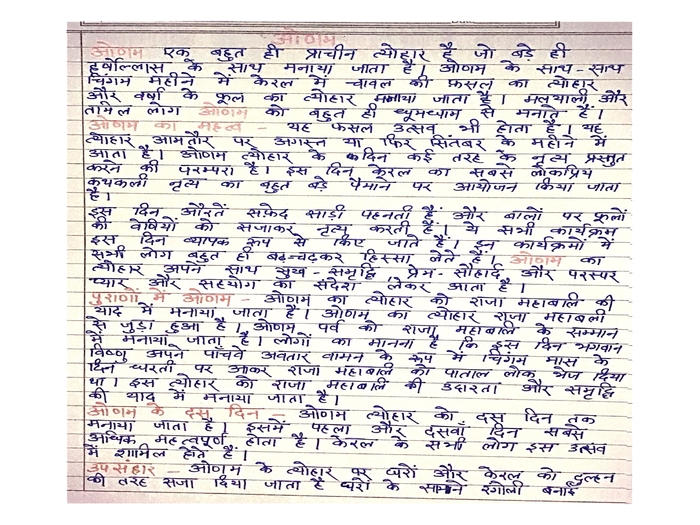 ओणम
ओणम एक बहुत ही प्राचीन त्योहार है जो बड़े ही
हर्षोल्लास के साथ मनाया जाता है। ओणम के साथ-साथ
चिंगम महीने में केरल में चावल की फ़सल का त्योहार
और वर्षा के फूल का त्योहार मनाया जाता है। मलयाली और
तमिल लोग ओणम को बहुत ही धूमधाम से मनाते हैं।
ओणम का महत्व - यह फसल उत्सव भी होता है। यह
त्योहार आमतौर पर अगस्त या फिर सितंबर के महीने में
आता है। ओणम त्योहार के दिन कई तरह के नृत्य प्रस्तुत
करने की परम्परा है। इस दिन केरल का सबसे लोकप्रिय
कथकली नृत्य का बहुत बड़े पैमाने पर आयोजन किया जाता
है।
इस दिन औरतें सफ़ेद साड़ी पहनती हैं और बालों पर फूलों
की वेणियों को सजाकर नृत्य करती हैं। ये सभी कार्यक्रम
इस दिन व्यापक रूप से किए जाते हैं। इन कार्यक्रमों में
सभी लोग बहुत ही बढ़-चढ़कर हिस्सा लेते हैं। ओणम का
त्योहार अपने साथ सुख-समृद्धि, प्रेम-सौहार्द और परस्पर
प्यार और सहयोग का संदेश लेकर आता है।
पुराणों में ओणम - ओणम का त्योहार को राजा महाबलि की
याद में मनाया जाता है। ओणम का त्योहार राजा महाबली
से जुड़ा हुआ है। ओणम पर्व को राजा महाबलि के सम्मान
में मनाया जाता है। लोगों का मानना है कि इस दिन भगवान
विष्णु अपने पाँचवे अवतार वामन के रूप में चिंगम मास के
दिन धरती पर आकर राजा महाबली को पाताल लोक भेज दिया
था। इस त्योहार को राजा महाबलि की उदारता और समृद्धि
की याद में मनाया जाता है।
ओणम के दस दिन - ओणम त्योहार को दस दिन तक
मनाया जाता है। इसमें पहला और दसवाँ दिन सबसे
अधिक महत्वपूर्ण होता है। केरल के सभी लोग इस उत्सव
में शामिल होते हैं।
उपसंहार - ओणम के त्योहार पर घरों और केरल को दुल्हन
की तरह सजा दिया जाता है घरों के सामने रंगोली बनाई